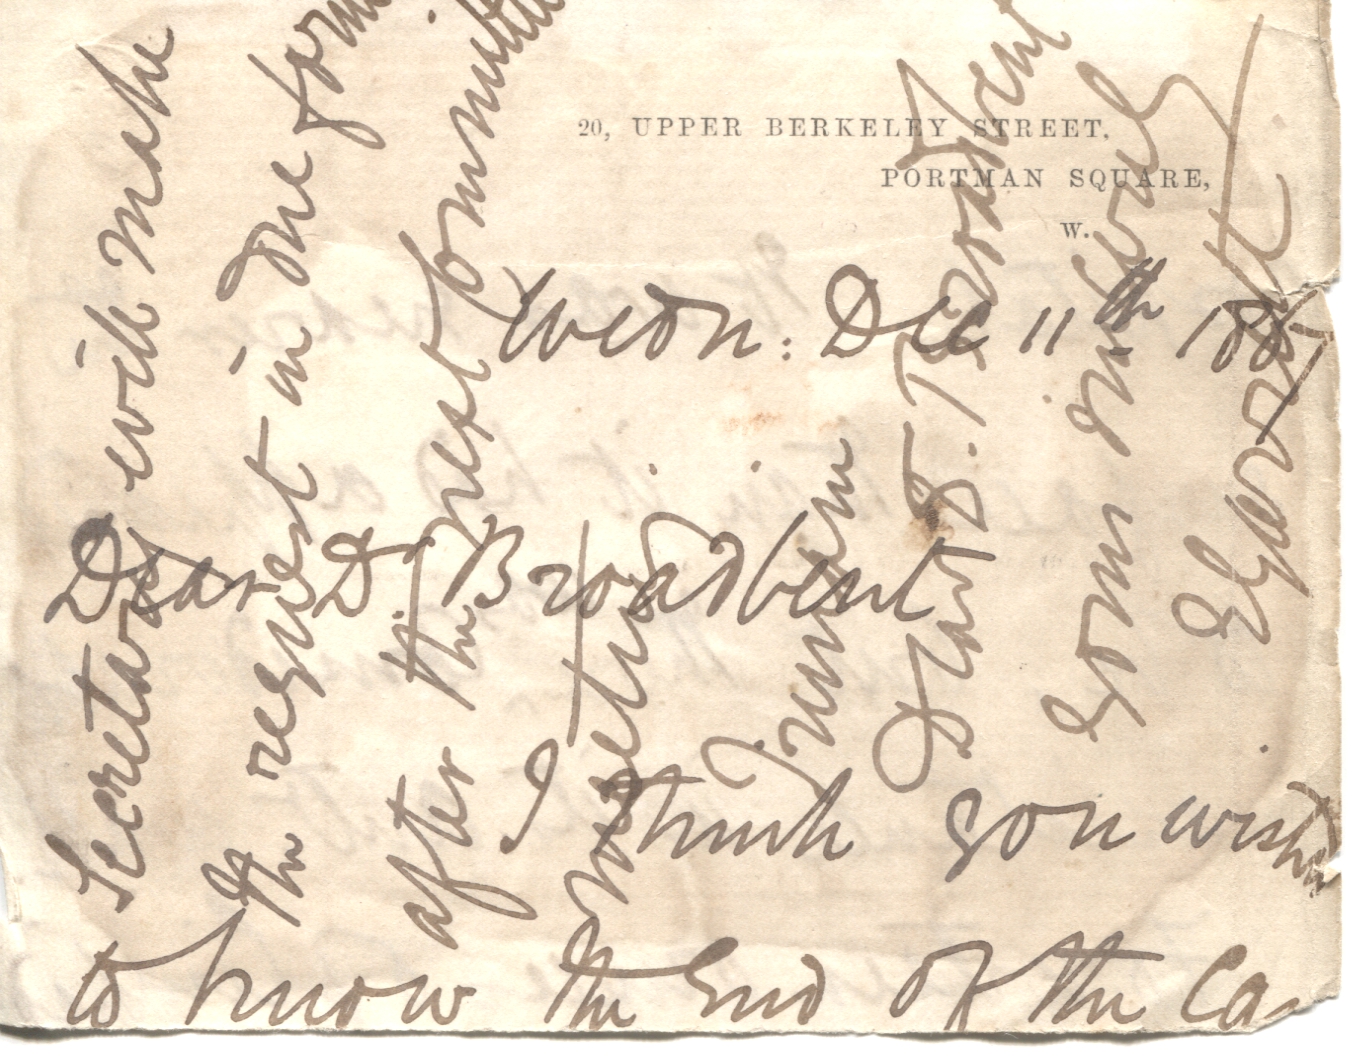 20, UPPER BERKELEY STREET,
PORTMAN SQUARE,
W.
Wedn: Dec 11th 188
Dear Dr. Broadbent
I think you wished
to know the End of the Ca
Secretary will make
the request in due form
after the next Committee
meeting
I remain
Dear Dr. Broadbent
Yours sincerely